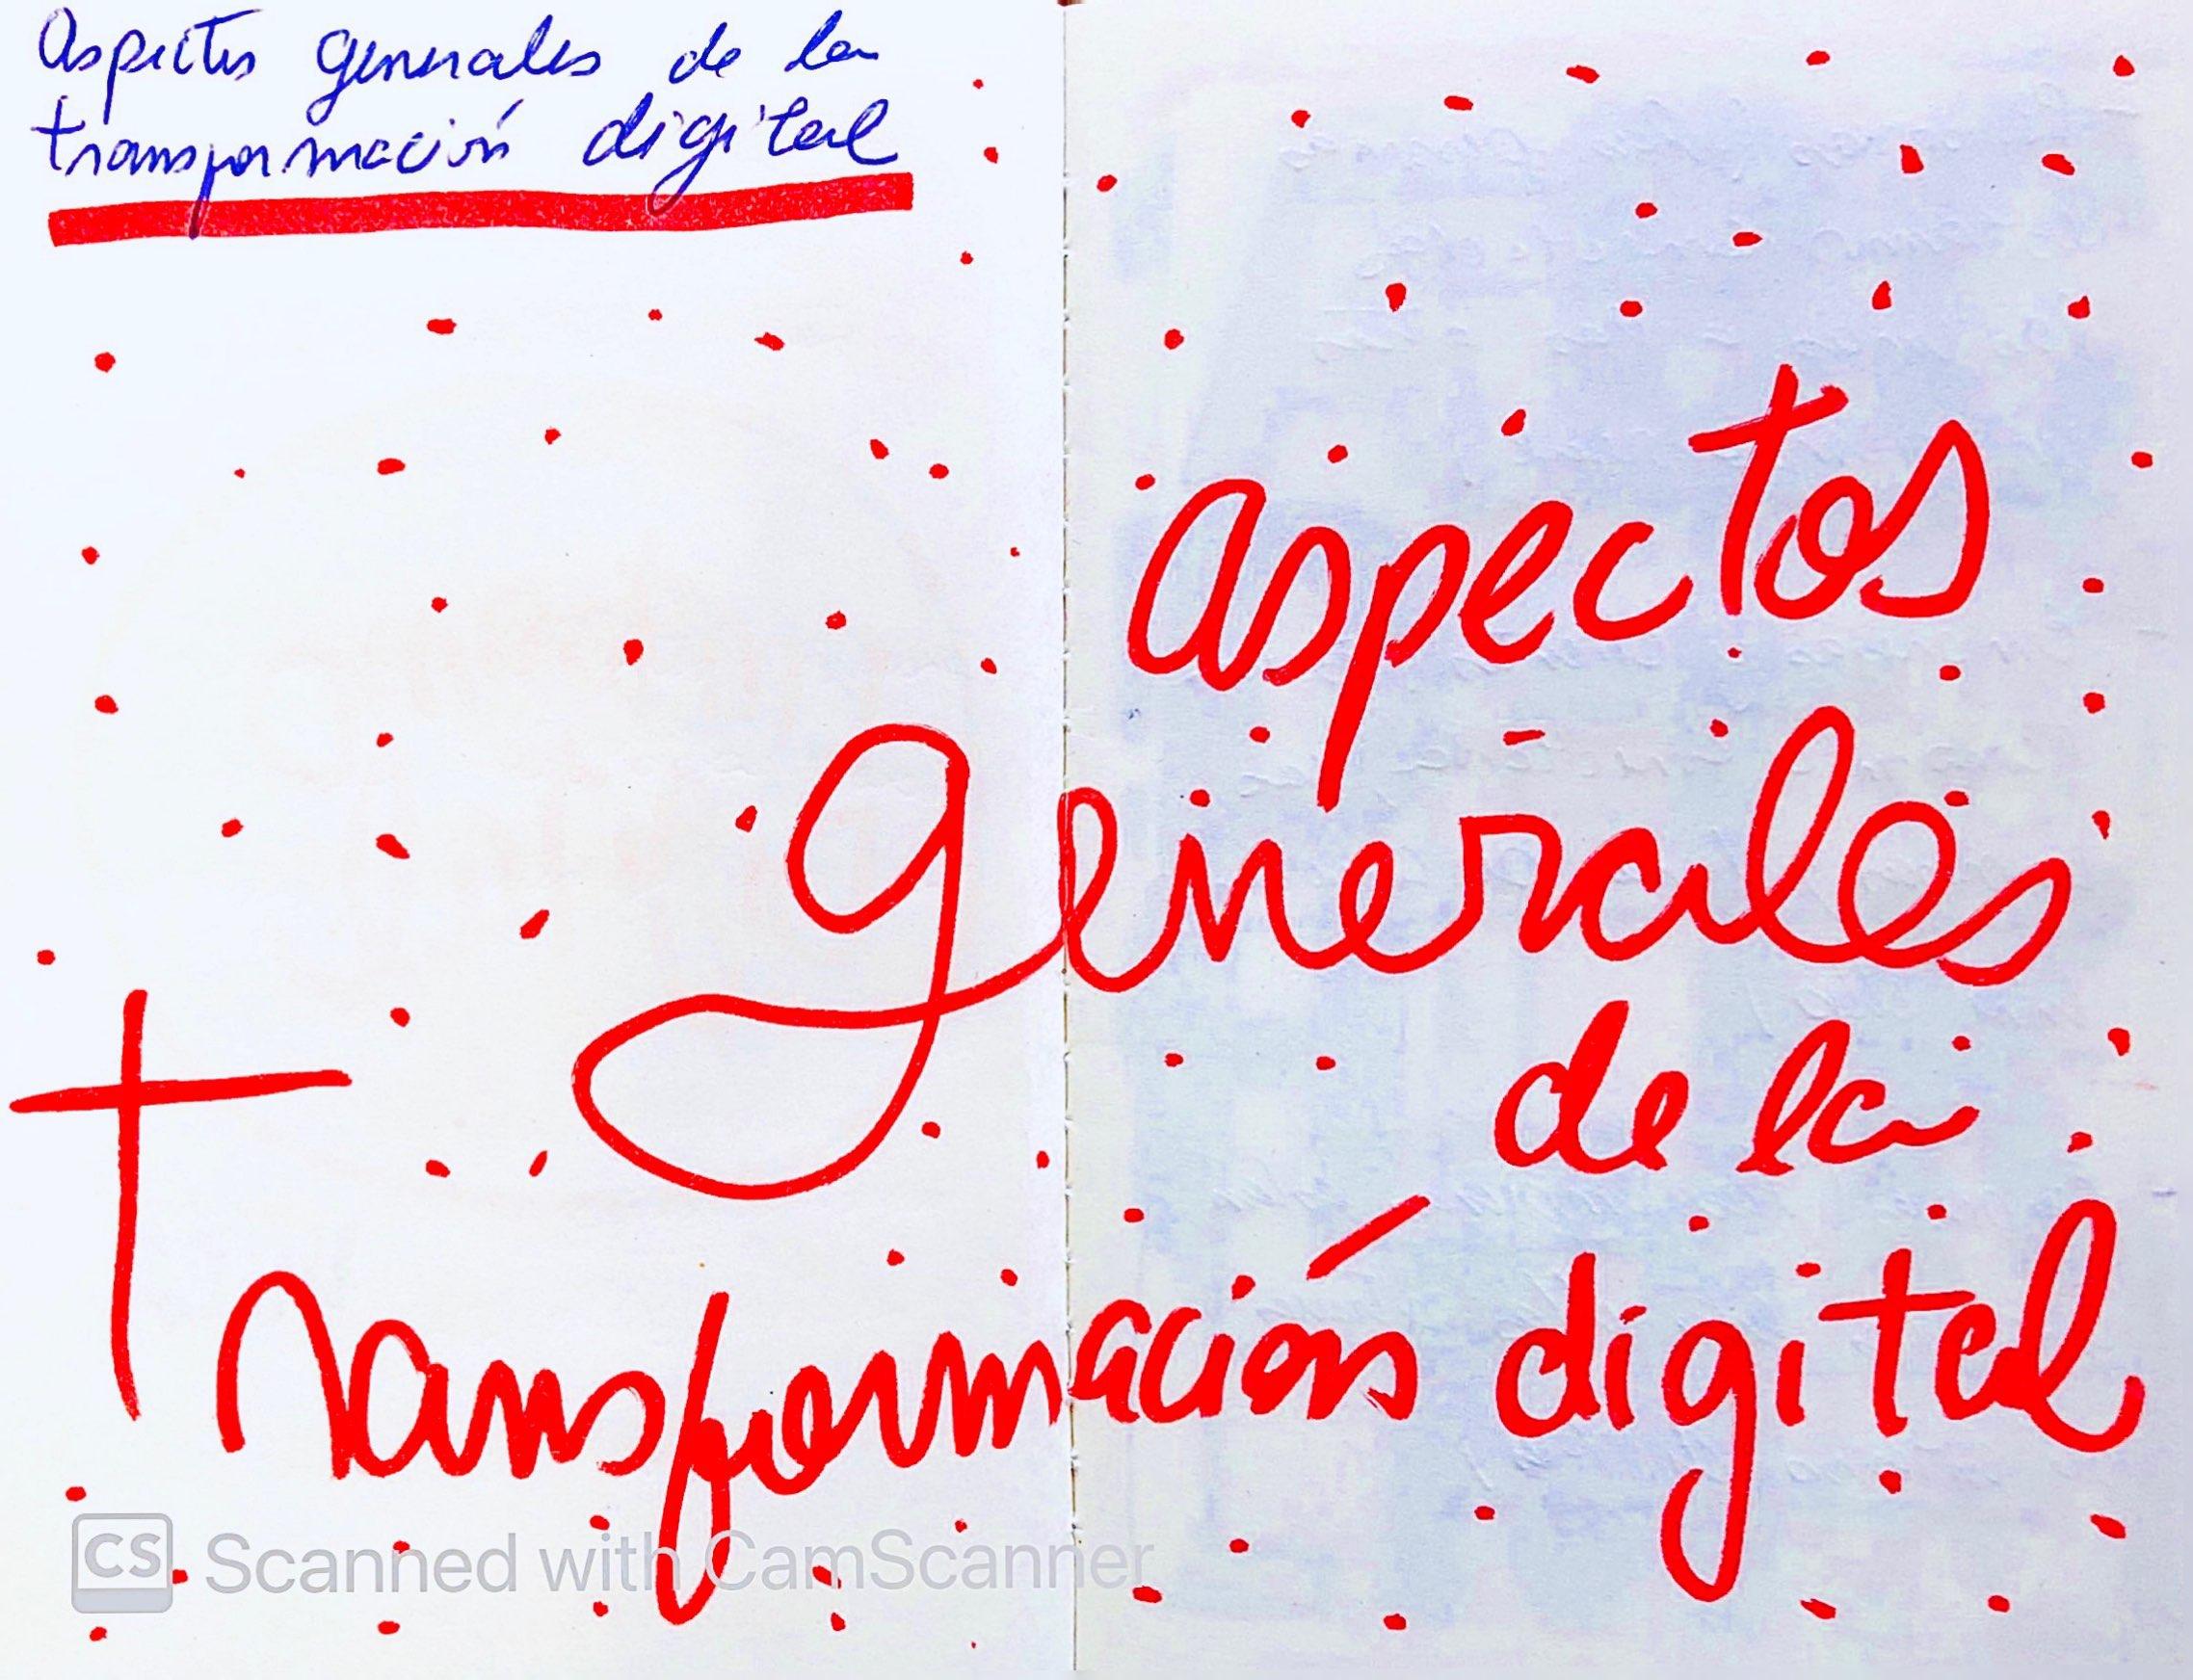 Aspectos generales de la
transformación digital
aspectos
generales
de la
transformación digital
CS Scanned with CamScanner